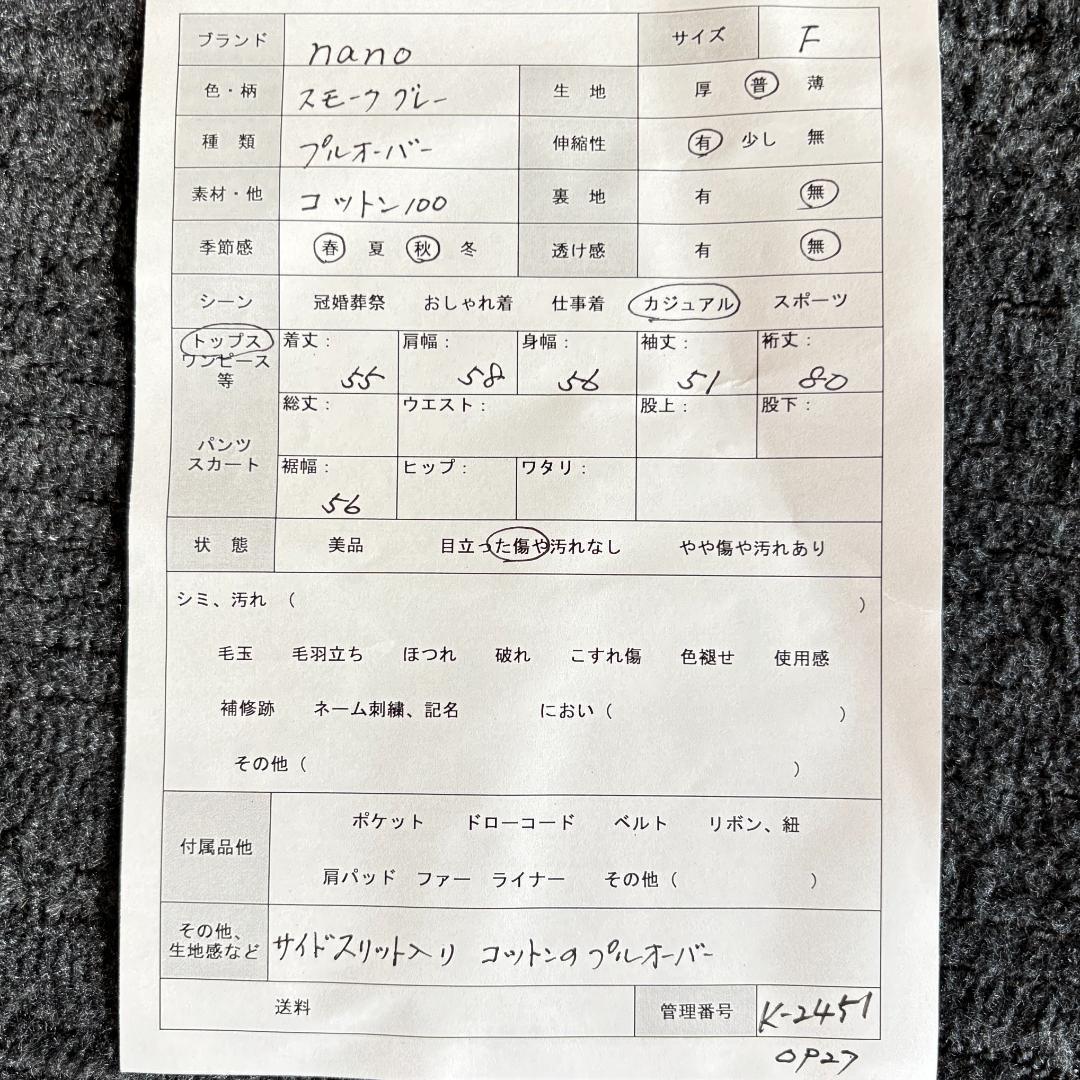 ブランド nano サイズ F
色・柄 スモークグレー 生 地 厚 普 薄
種 類 プルオーバー 伸縮性 有 少し 無
素材・他 コットン100 裏 地 有 無
季節感 春 夏 秋 冬 透け感 有 無
シーン 冠婚葬祭 おしゃれ着 仕事着 カジュアル スポーツ
トップス 着丈： 肩幅： 身幅： 袖丈： 裄丈：
ワンピース
等 55 58 56 51 80
総丈： ウエスト： 股上： 股下：
パンツ
スカート 裾幅： ヒップ： ワタリ：
56
状 態 美品 目立った傷や汚れなし やや傷や汚れあり
シミ、汚れ （ ）
毛玉 毛羽立ち ほつれ 破れ こすれ傷 色褪せ 使用感
補修跡 ネーム刺繍、記名 におい（ ）
その他（ ）
ポケット ドローコード ベルト リボン、紐
付属品他
肩パッド ファー ライナー その他（ ）
その他、
生地感など サイドスリット入り コットンのプルオーバー
送料 管理番号 K-2451
OP27